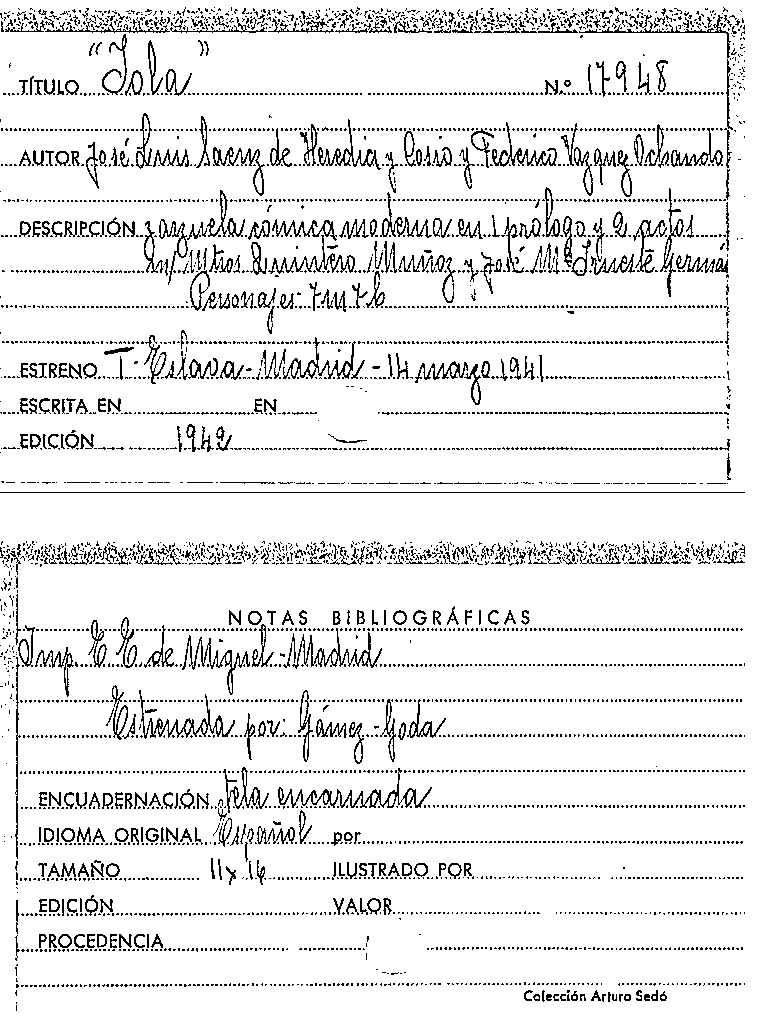 TÍTULO "Yola" N.º 17948
AUTOR José Luis Saenz de Heredia y Cosio y Federico Vazquez Ochando
DESCRIPCIÓN zarzuela cómica moderna en 1 prólogo y 2 actos
Mtros Quintero Muñoz y José Mª Irueste Germán
Personajes - 7 m 7 h
ESTRENO T. Eslava - Madrid - 14 marzo 1941
ESCRITA EN EN
EDICIÓN 1942
NOTAS BIBLIOGRÁFICAS
Imp. E. E. de Miguel - Madrid
Estrenada por: Gámez - Goda
ENCUADERNACIÓN tela encarnada
IDIOMA ORIGINAL Español por
TAMAÑO 11 x 16 ILUSTRADO POR
EDICIÓN VALOR
PROCEDENCIA
Colección Arturo Sedó